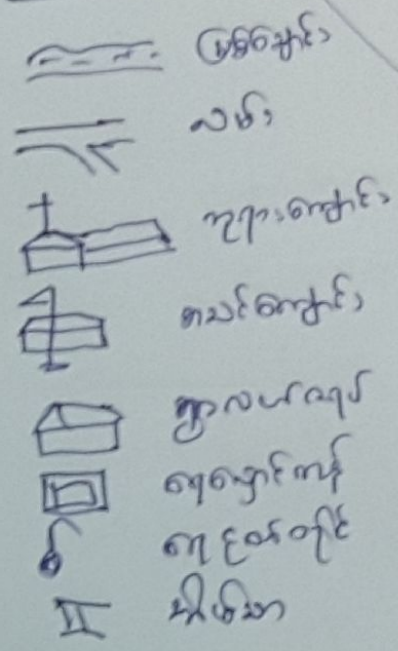 မြစ်ချောင်း
လမ်း
ဘုရားကျောင်း
စာသင်ကျောင်း
ရွာလယ်ယာ
ရေလှောင်ကန်
ရေငုတ်တိုင်
အိမ်သာ